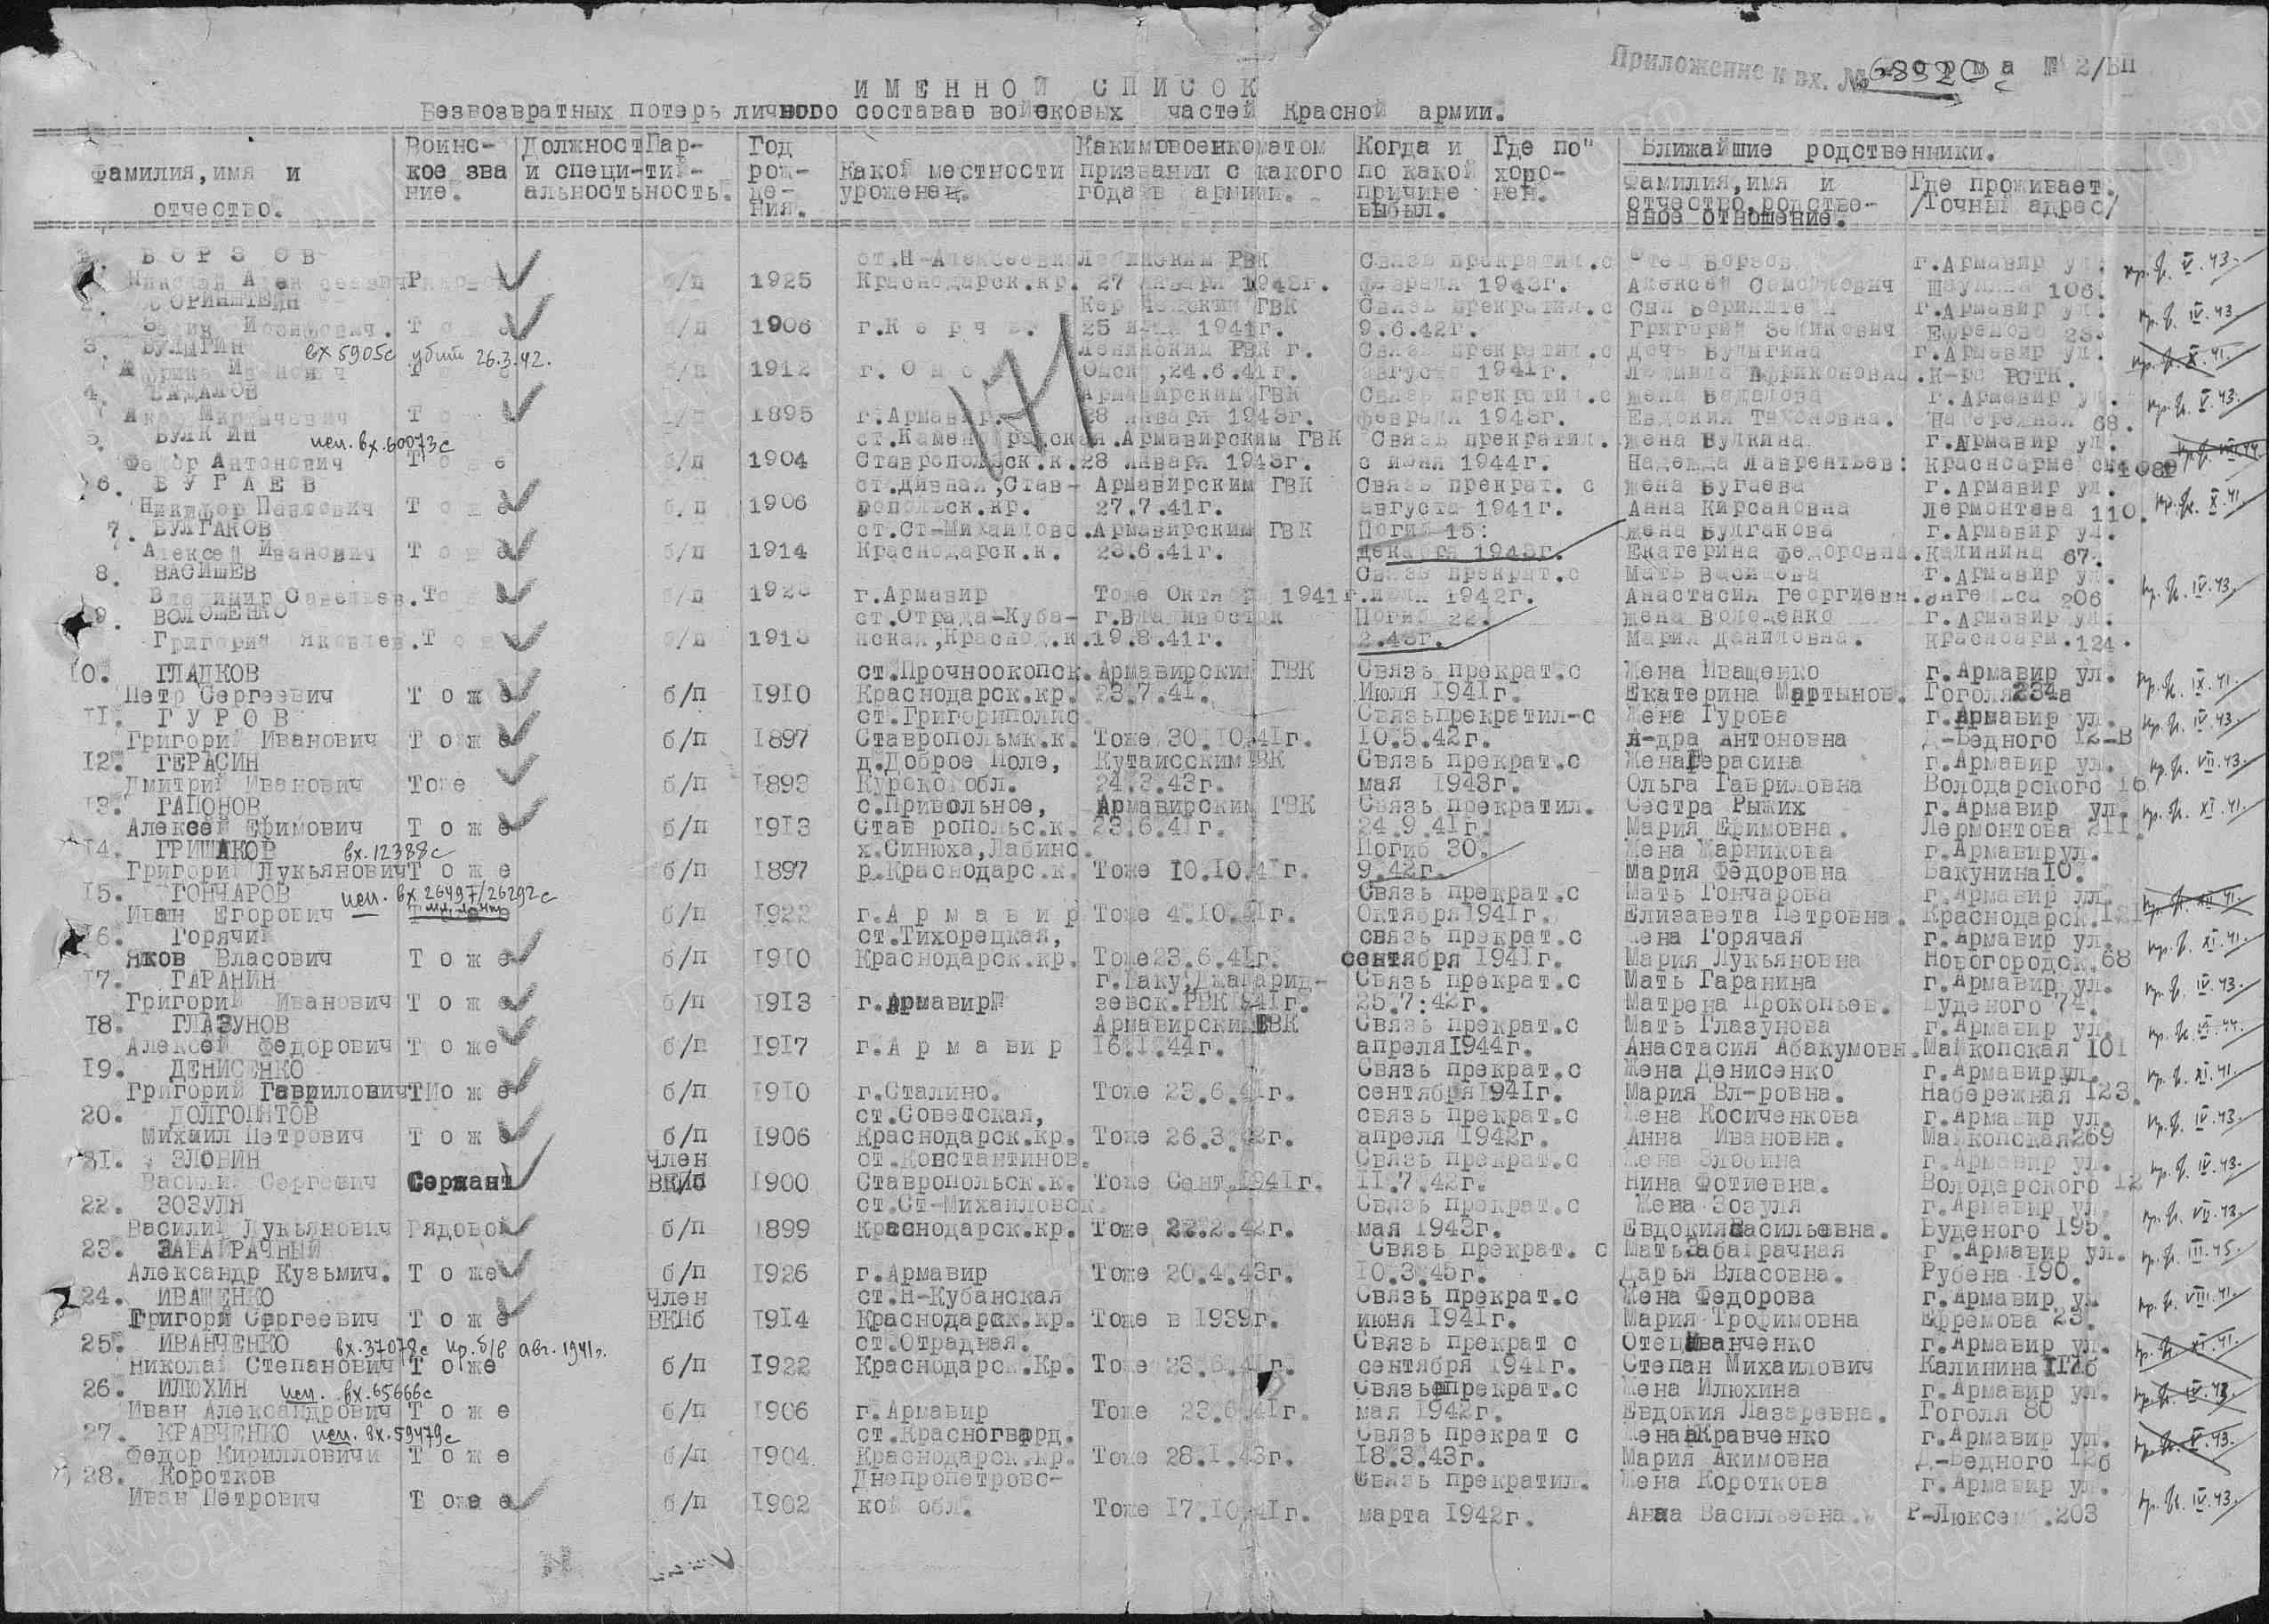 Приложение к вх. № 68920с
Форма № 2/БП
ИМЕННОЙ СПИСОК
Безвозвратных потерь личного составав войсковых частей Красной армии.
Фамилия, имя и отчество.
Воинс-кое зва ние.
Должност и специ-альность
Пар-тий-ность.
Год рож-де-ния.
Какой местности уроженец.
Какимвоенкоматом призвании с какого года в армии.
Когда и по какой причине выбыл.
Где по" хоро-нен.
Ближайшие родственники.
Фамилия, имя и отчество, родстве-нное отношение.
Где проживает. /Точный адрес/
БОРЗОВ ст.Н-Алексеевка РВК Связь прекратил.с Отец Борзов г.Армавир ул. пр. б. V.43.
Николай 1925 Краснодарск.кр. 27 января 1943г. февраля 1943г. Алексей Шаумяна 106.
2. БОРИНШТЕЙН ГВК Связь прекратил.с Сын г.Армавир ул. пр. б. IV.43
Тоже 1906 г.Керчь. 25 1941г. 9.6.42г. Григорий Ефремова 23.
3. БУЛЫГИН вх 5905с убит 26.3.42. Ленинским РВК г. Связь прекратил.с Дочь Булыгина г.Армавир ул. пр. б. X.41.
б/п 1912 г. Омск Омск, 24.6.41г. августа 1941г. Людмила Африконовна. К-ра РСТК.
4. БАДАЛОВ Армавирским ГВК Связь прекратил.с Жена Бадалова г.Армавир ул. пр. б. V.43.
Тоже 1895 г.Армавир. 28 января 1943г. февраля 1943г. Евдокия Тихоновна. Набережная 68.
5. БУЛКИН исп. вх.60073с ст. Армавирским ГВК Связь прекратил. Жена Булкина г.Армавир ул.
Федор Антонович Тоже б/п 1904 Ставропольск.к. 28 января 1943г. с июня 1944г. Надежда Лаврентьев: Красноарме
6. БУГАЕВ ст.Дивная, Став- Армавирским ГВК Связь прекрат. с Жена Бугаева г.Армавир ул. пр. б. X.41
Никифор Павлович Тоже б.п 1906 ропольск.кр. 27.7.41г. августа 1941г. Анна Кирсановна Лермонтова 110.
7. БУЛГАКОВ ст.Ст-Михайловс. Армавирским ГВК Погиб 15: Жена Булгакова г.Армавир ул.
Алексей Иванович Тоже б/п 1914 Краснодарск.к. 23.6.41г. декабря 1943г. Екатерина Федоровна. Калинина 67.
8. ВАСИШЕВ Связь прекрат.с Мать г.Армавир ул. пр. б. IV.43.
Владимир Савельев. Тоже б/п г.Армавир Тоже Октябр 1941г. июля 1942г. Анастасия Георгиевн. Энгельса 206
9. ВОЛОШЕНКО ст.Отрада-Куба- г.Владивосток Погиб 22. Жена г.Армавир ул.
Григорий Яковлев. Тоже б/п 1913 нская, Краснод.к. 19.8.41г. 2.43г. Мария Даниловна. Красноарм.124.
10. ГЛАДКОВ ст.Прочноокопск. Армавирским ГВК Связь прекрат.с Жена Иващенко г.Армавир ул. пр. б. IX.41.
Петр Сергеевич Тоже б/п 1910 Краснодарск.кр. 23.7.41. Июля 1941г. Екатерина Мартынов. Гоголя 234а
11. ГУРОВ ст.Григориполис. Связьпрекратил-с Жена Гурова г.Армавир ул. пр. б. IV.43.
Григорий Иванович Тоже б/п 1897 Ставропольмк.к. Тоже 30.10.41г. 10.5.42г. А-дра Антоновна Д-Бедного 12-В
12. ГЕРАСИН д.Доброе Поле, Кутаисским ГВК Связь прекрат.с Жена Герасина г.Армавир ул. пр. б. VII.43.
Дмитрий Иванович Тоже б/п 1893 Курско обл. 24.3.43г. мая 1943г. Ольга Гавриловна Володарского 16
13. ГАПОНОВ с.Привольное, Армавирским ГВК Связь прекратил. Сестра Рыжих г.Армавир ул. пр. б. XI.41.
Алексей Ефимович Тоже б/п 1913 Став ропольс.к. 23.6.41г. 24.9.41г. Мария Ефимовна. Лермонтова 211.
14. ГРИШАКОВ вх.12388с х.Синюха, Лабинс. Погиб 30. Жена Жарникова г.Армавирул.
Григорий Лукьянович Тоже б/п 1897 р.Краснодарс.к. Тоже 10.10.41г. 9.42г. Мария Федоровна Бакунина10.
15. ГОНЧАРОВ исп. вх 26497/26292с Связь прекрат.с Мать Гончарова г.Армавир ул. пр. б. XII.41.
Иван Егорович б/п 1922 г.Армавир Тоже 4.10.41г. Октября1941г. Елизавета Петровна. Краснодарск.121
16. Горячий ст.Тихорецкая, связь прекрат.с Жена Горячая г.Армавир ул. пр. б. XI.41.
Яков Власович Тоже б/п 1910 Краснодарск.кр. Тоже23.6.41г. сентября 1941г. Мария Лукьяновна Новогородск.68
17. ГАРАНИН г.Баку, Джапарид- Связь прекрат.с Мать Гаранина г.Армавир ул. пр. б. IV.43.
Григорий Иванович Тоже б/п 1913 г.Армавир зевск.РВК 1941г. 25.7:42г. Матрена Прокопьев. Буденого 74.
18. ГЛАЗУНОВ Армавирским ГВК Связь прекрат.с Мать Глазунова г.Армавир ул.
Алексей Федорович Тоже б/п 1917 г.Армавир 16.1.44г. апреля1944г. Анастасия Абакумовн. Майкопская 101
19. ДЕНИСЕНКО Связь прекрат.с Жена Денисенко г.Армавирул. пр. б. XI.41.
Григорий Гаврилович Тоже б/п 1910 г.Сталино. Тоже 23.6.41г. сентября1941г. Мария Вл-ровна. Набережная 123.
20. ДОЛГОПЯТОВ ст.Советская, связь прекрат.с Жена Косиченкова г.Армавир ул. пр. б. IV.43.
Михаил Петрович Тоже б/п 1906 Краснодарск.кр. Тоже 26.3.42г. апреля 1942г. Анна Ивановна. Майкопская269
21. ЗЛОБИН член ст.Константинов. Связь прекрат.с Жена Злобина г.Армавир ул. пр. б. IV.43.
Василий Сергеевич Сержант ВКПб 1900 Ставропольск.к. Тоже Сент.1941г. 11.7.42г. Нина Фотиевна. Володарского 12
22. ЗОЗУЛЯ ст.Ст-Михайловск. Связь прекрат.с Жена Зозуля г.Армавир ул. пр. б. VII.43.
Василий Лукьянович Рядовой б/п 1899 Краснодарск.кр. Тоже 22.2.42г. мая 1943г. Евдокия Васильевна. Буденого 195.
23. ЗАБАЙРАЧНЫЙ Связь прекрат. с Мать Забайрачная г.Армавир ул. пр. б. III.45.
Александр Кузьмич. Тоже б/п 1926 г.Армавир Тоже 20.4.43г. 10.3.45г. Дарья Власовна. Рубена 190.
24. ИВАЩЕНКО член ст.Н-Кубанская Связь прекрат.с Жена Федорова г.Армавир ул. пр. б. VIII.41.
Григорй Сергеевич Тоже ВКПб 1914 Краснодарск.кр. Тоже в 1939г. июня 1941г. Мария Трофимовна Ефремова 23.
25. ИВАНЧЕНКО вх.37078с пр. б/в авг. 1941г. ст.Отрадная. Связь прекрат с Отец Иванченко г.Армавир ул. пр. б. XI.41.
Николай Степанович Тоже б/п 1922 Краснодарск.Кр. Тоже 23.6.41г. сентября 1941г. Степан Михаилович Калинина 117б
26. ИЛЮХИН исп. вх.65666с Связь прекрат.с Жена Илюхина г.Армавир ул.
Иван Александрович Тоже б/п 1906 г.Армавир Тоже 23.6.41г. мая 1942г. Евдокия Лазаревна. Гоголя 80
27. КРАВЧЕНКО исп. вх.59479с ст.Красногвард. Связь прекрат с Жена Кравченко г.Армавир ул. пр. б. V.43.
Федор Кирилловичи Тоже б/п 1904 Краснодарск.кр. Тоже 28.1.43г. 18.3.43г. Мария Акимовна Д-Бедного 12б
28. Коротков Днепропетровс- Связь прекратил. Жена Короткова г.Армавир ул. пр. б. IV.43.
Иван Петрович Тоже б/п 1902 кой обл. Тоже 17.10.41г. марта 1942г. Анна Васильевна. Р-Люксем.203